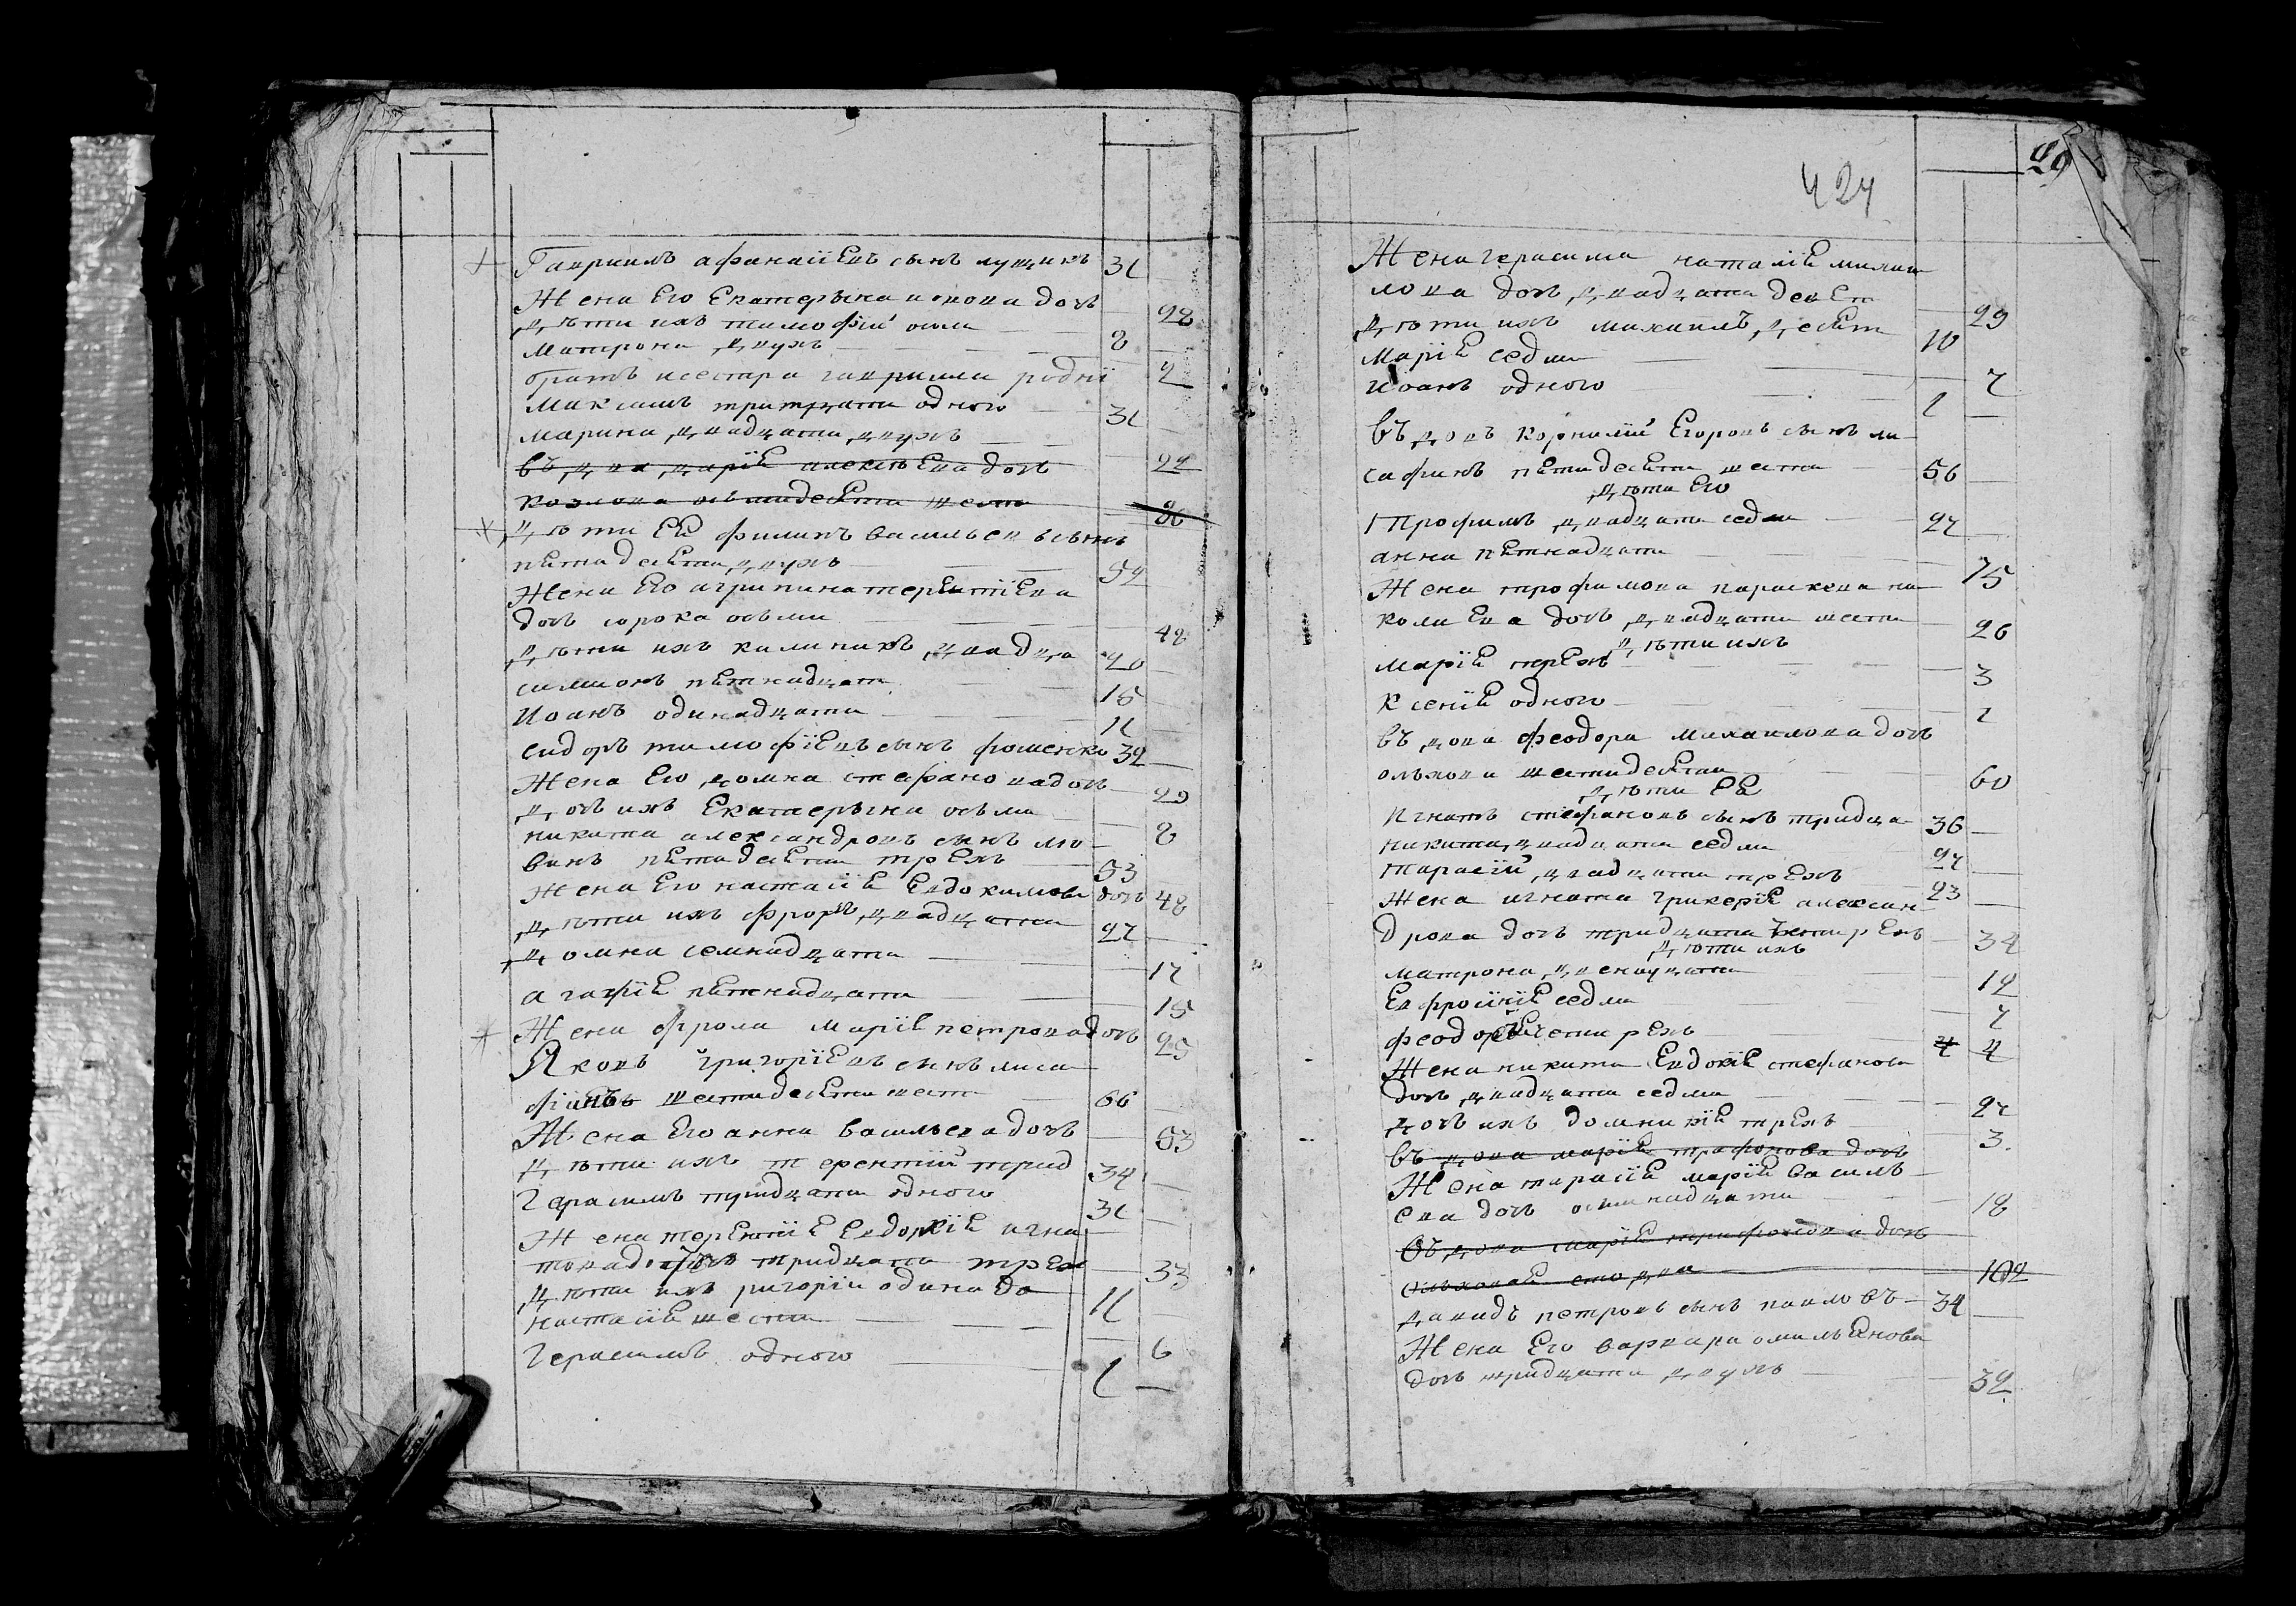 Гавриилъ афанасіевъ сынъ лущикъ 31
Жена Его Екатерына ионова дочь 28
дѣти ихъ тимофій осми 8
матрона двухъ 2
братъ исестра гавриила роднїи
Максимъ тритцати одного 31
марина двадцати двухъ 22
въдова дарія алексѣева дочь
козлова осмидесяти шести 86
дѣти Ея филипъ васильевъ сынъ
пятидесяти двухъ 52
Жена Его агрипина терентїева
дочь сорока осьми 48
дѣти ихъ калиникъ двадца 20
симионъ пятнадцат 15
Иоанъ одинадцати 11
сидоръ тимофїевъ сынъ фоменко 32
Жена Его домна стефановадочь 29
дочь ихъ Екатерына осьми 8
никита александровъ сынъ лю-
винъ пятидесяти трехъ 53
Жена Его настасїя Евдокимова дочь 48
дѣти ихъ фроръ двадцати 27
домна семнадцати 17
агафїя пятнадцати 15
Жена фрола марїя петровадочь 25
Яковъ григорїевъ сынъ лиса
фїинъ шестидесяти шести 66
Жена Его анна васильева дочь 53
дѣти ихъ терентїй трид 34
Герасимъ тридцати одного 31
Жена терентїя Евдокїя игна
това дочь тридцати трех 33
дѣти ихъ григорїи одинадо 11
настасїя шести 6
Герасимъ одного 1
29
424
Жена герасима наталїя михаи
лова дочь двадцати девят 29
дѣти ихъ михаилъ десят 10
марїя седми 7
иоанъ одного 1
въдовъ корнилїй Егоровъ сынъ ли-
сафинъ пятидесяти шести 56
дѣти Его
Трофимъ двадцати седми 27
анна пятнадцати 15
Жена трофимова параскева ни
колаева дочь двадцати шести 26
дѣти ихъ
марїя трехъ 3
ксенїя одного 1
въдова феодора михаилова дочь
ольхова шестидесяти 60
дѣти Ея
Игнатъ стефановъ сынъ тридца 36
никита двадцати седми 27
тарасїй двадцати трехъ 23
Жена игната гликерїя алексан-
дрова дочь тридцати четирехъ 34
дѣти ихъ
матрона двенацати 12
Евфросїнїя седми 7
феодосїя четирехъ 4 4
Жена никиты Евдокїя стефанова
дочь двадцати седми 27
дочь ихъ домникїя трехъ 3.
въдова марїя трифонова дочь
Жена тарасїя марїя василь-
ева дочь осминадцати 18
въдова марїя трифонова дочь
ольховая сто два 102
давидъ петровъ сынъ павловъ 34
Жена Его варвара омильянова
дочь тридцати двухъ 32